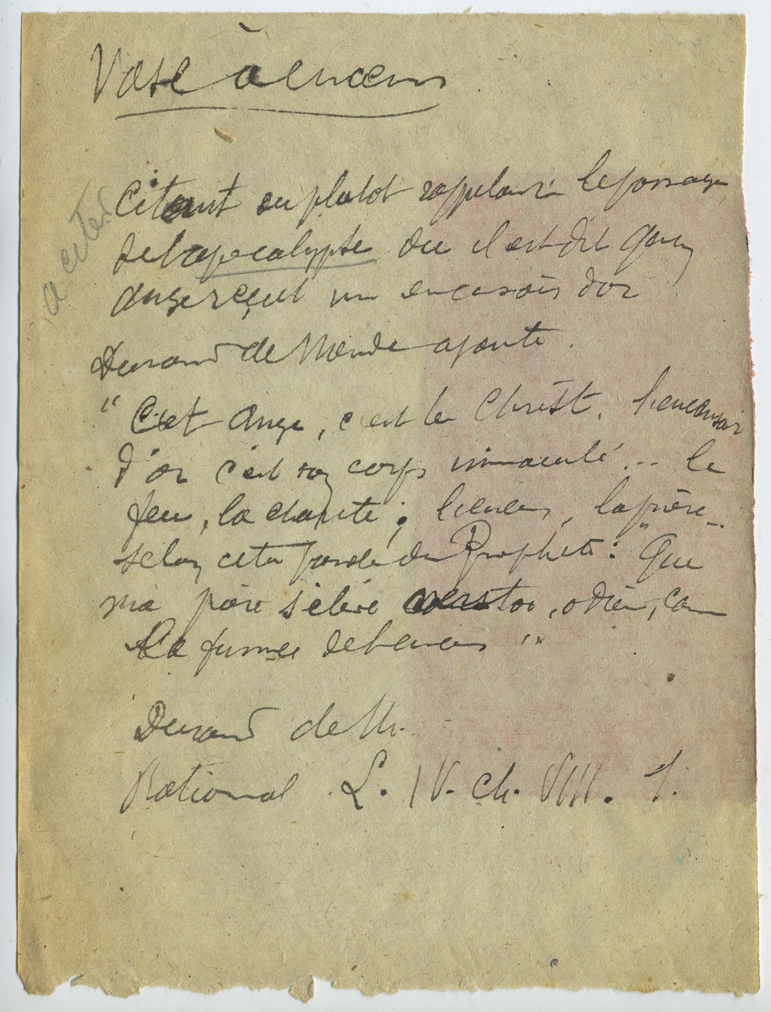 Vase à encens
à citer
Citant ou plutôt rappelant le passage
de l'apocalypse ou il est dit qu'un
ange reçut un encensoir d'or
Durand de Mende ajoute.
"Cet Ange, c'est le Christ, l'encensoir
d'or c'est son corps immaculé... le
feu, la charité ; l'encens, la prière..
selon cette parole du Prophète : "Que
ma prière s'élève vers toi, o Dieu, comme
la fumée de l'encens"
Durand de M.
Rational L. IV. ch. VIII. 1.